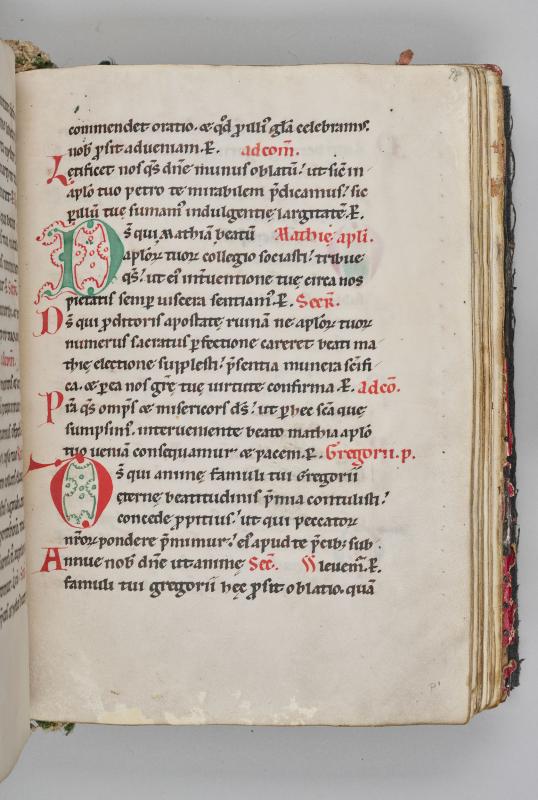 98
commendet oratio. ⁊ qđ p̱ illi᷒ głā celebram᷒.
nob̄ ꝓsit ad veniam. ꝑ. ad com̄.
Letificet nos q̄s dn̄e munus oblatū. ut sic̄ in
aplō tuo petro te mirabilem p̄dicamus. sic
ꝑ illū tuę sumam᷒ indulgentię largitatē. ꝑ.
Ds̄ qui Mathiā beatū Mathię apli.
aplōꝝ tuoꝝ collegio sociasti. tribue
q̄s. ut ei᷒ int̄ventione tuę circa nos
pietatis semꝑ viscera sentiam᷒. ꝑ. Secr̄.
Ds̄ qui ꝓditoris apostatę ruinā ne aplōꝝ tuoꝝ
numerus sacratus ꝑfectione careret beati ma
thię electione supplesti. p̄sentia munera sc̄ifi
ca. ⁊ ꝑ ea nos grę̄ tuę virtute confirma. ꝑ. ad cō.
Prā q̄s omp̄s ⁊ misericors ds̄. ut ꝑ hec sc̄a quę
sumpsim᷒. interveniente beato mathia aplō
tuo veniā consequamur ⁊ pacem. ꝑ. Gregorii. p.
Ds̄ qui animę famuli tui Gregorii
ęternę beatitudinis p̄mia contulisti.
concede ꝓpitius. ut qui peccatoꝝ
nr̄oꝝ pondere p̄mimur. ei᷒ apud te p̄cib᷒ sub
Annue nob̄ dn̄e ut animę Sec̄. levem̄. ꝑ.
famuli tui gregorii hęc ꝓsit oblatio. quā